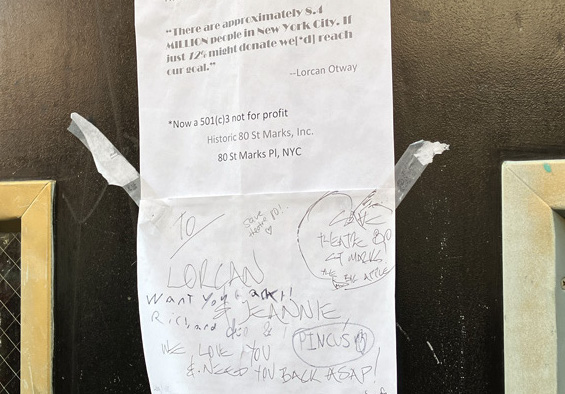 "There are approximately 8.4
MILLION people in New York City. If
just 12% might donate we[*d] reach
our goal."
--Lorcan Otway
*Now a 501(c)3 not for profit
Historic 80 St Marks, Inc.
80 St Marks Pl, NYC
TO
Save
theatre 80!
SAVE
THEATRE 80
ST MARKS
THE BIG APPLE
LORCAN
Want You Back!!
& JEANNIE,
Richard
PINCUS
WE LOVE YOU
& NEED YOU BACK ASAP!